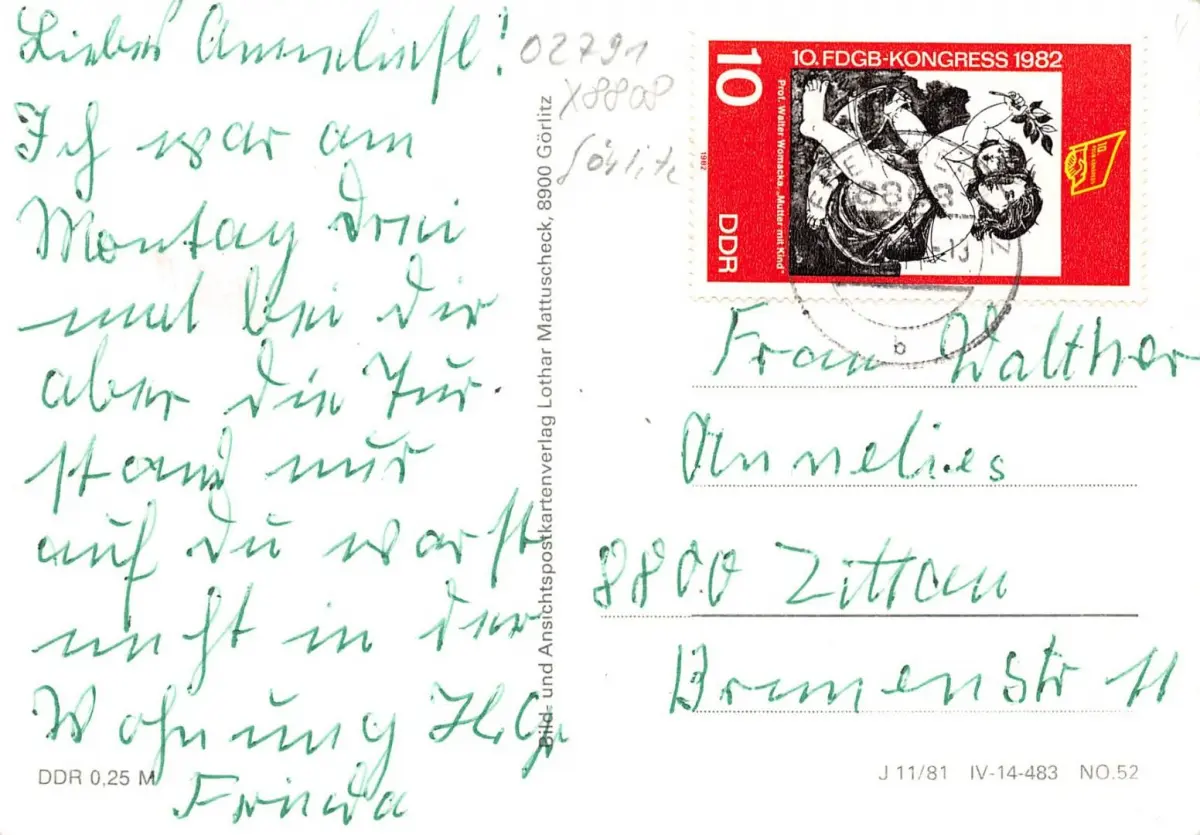 Liebes Anneliesl!
Ich war am
Montag drei
mal bei dir
aber die Tür
stand nur
auf du warst
nicht in der
Wohnung H. Gr.
Frieda
DDR 0,25 M
Bild- und Ansichtspostkartenverlag Lothar Mattuscheck, 8900 Görlitz
02791
X8808
Görlitz
10
10. FDGB-KONGRESS 1982
Prof. Walter Womacka „Mutter mit Kind"
1982
DDR
8808
b
Frau Walther
Annelies
8800 Zittau
Brunnenstr 11
J 11/81 IV-14-483 NO.52